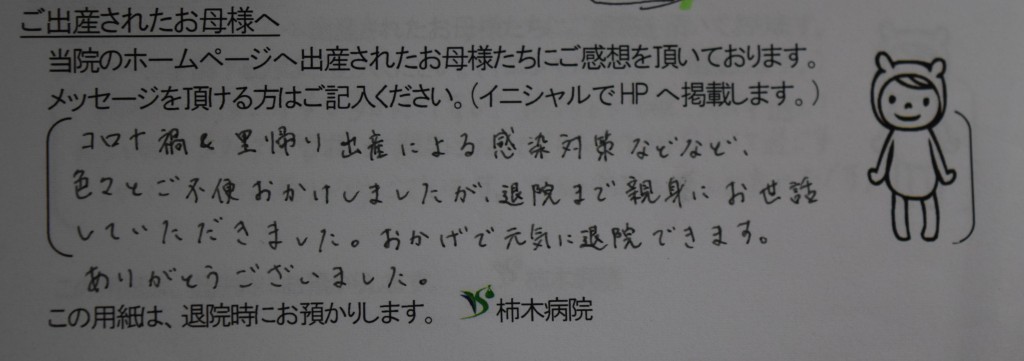 ご出産されたお母様へ
当院のホームページへ出産されたお母様たちにご感想を頂いております。
メッセージを頂ける方はご記入ください。(イニシャルでHPへ掲載します。)
コロナ禍&里帰り出産による感染対策などなど、
色々とご不便おかけしましたが、退院まで親身にお世話
していただきました。おかげで元気に退院できます。
ありがとうございました。
この用紙は、退院時にお預かりします。 柿木病院